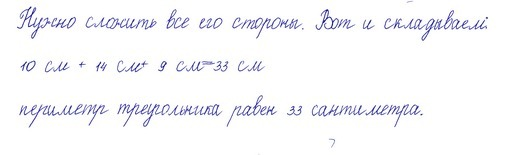 Нужно сложить все его стороны. Вот и складываем:
10 см + 14 см+ 9 см=33 см
периметр треугольника равен 33 сантиметра.